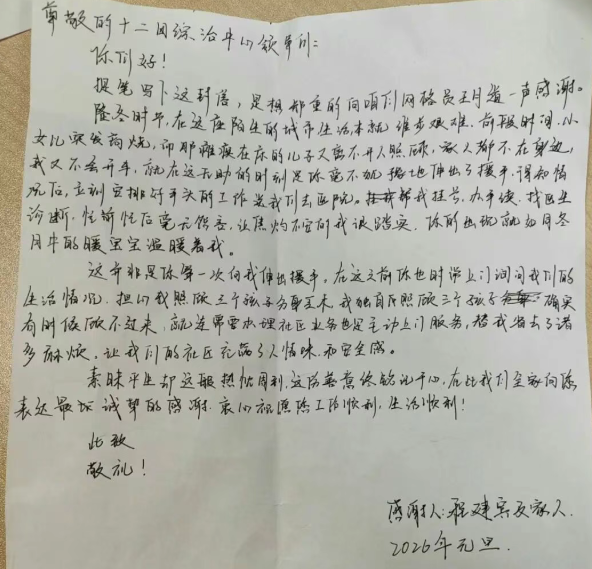 尊敬的十二团综治中心领导们：
你们好！
提笔写下这封信，是想郑重的向咱们网格员王月道一声感谢。
隆冬时节，在这座陌生的城市生活本就 步艰难，前段时间，小
女儿突发高烧，而那瘫痪在床的儿子又离不开人照顾，家人都不在身边，
我又不会开车，就在这无助的时刻是你毫不犹 地伸出了援手，得知情
况后，立刻安排好手头的工作送我们去医院。 帮我挂号、办手续、找医生
诊断，忙前忙后毫无怨言，让焦灼不安的我很踏实，你的出现就如月冬
月中的暖 温暖着我。
这并非是你第一次向我伸出援手。在这之前你也时常上门询问我们的
生活情况，担心我照顾三个孩子分身乏术，我独自照顾三个孩子 确实
有时候做不过来，就连需要办理社区业务也是主动上门服务，替我省去了诸
多麻烦，让我们的社区充满了人情味和安全感。
素昧平生却这般热忱周到，这份善意你铭记于心，在此我们全家向你
表达最诚挚的感谢，衷心祝愿你工作顺利，生活顺利！
此致
敬礼！
感谢人： 建 及家人
2026年元旦.